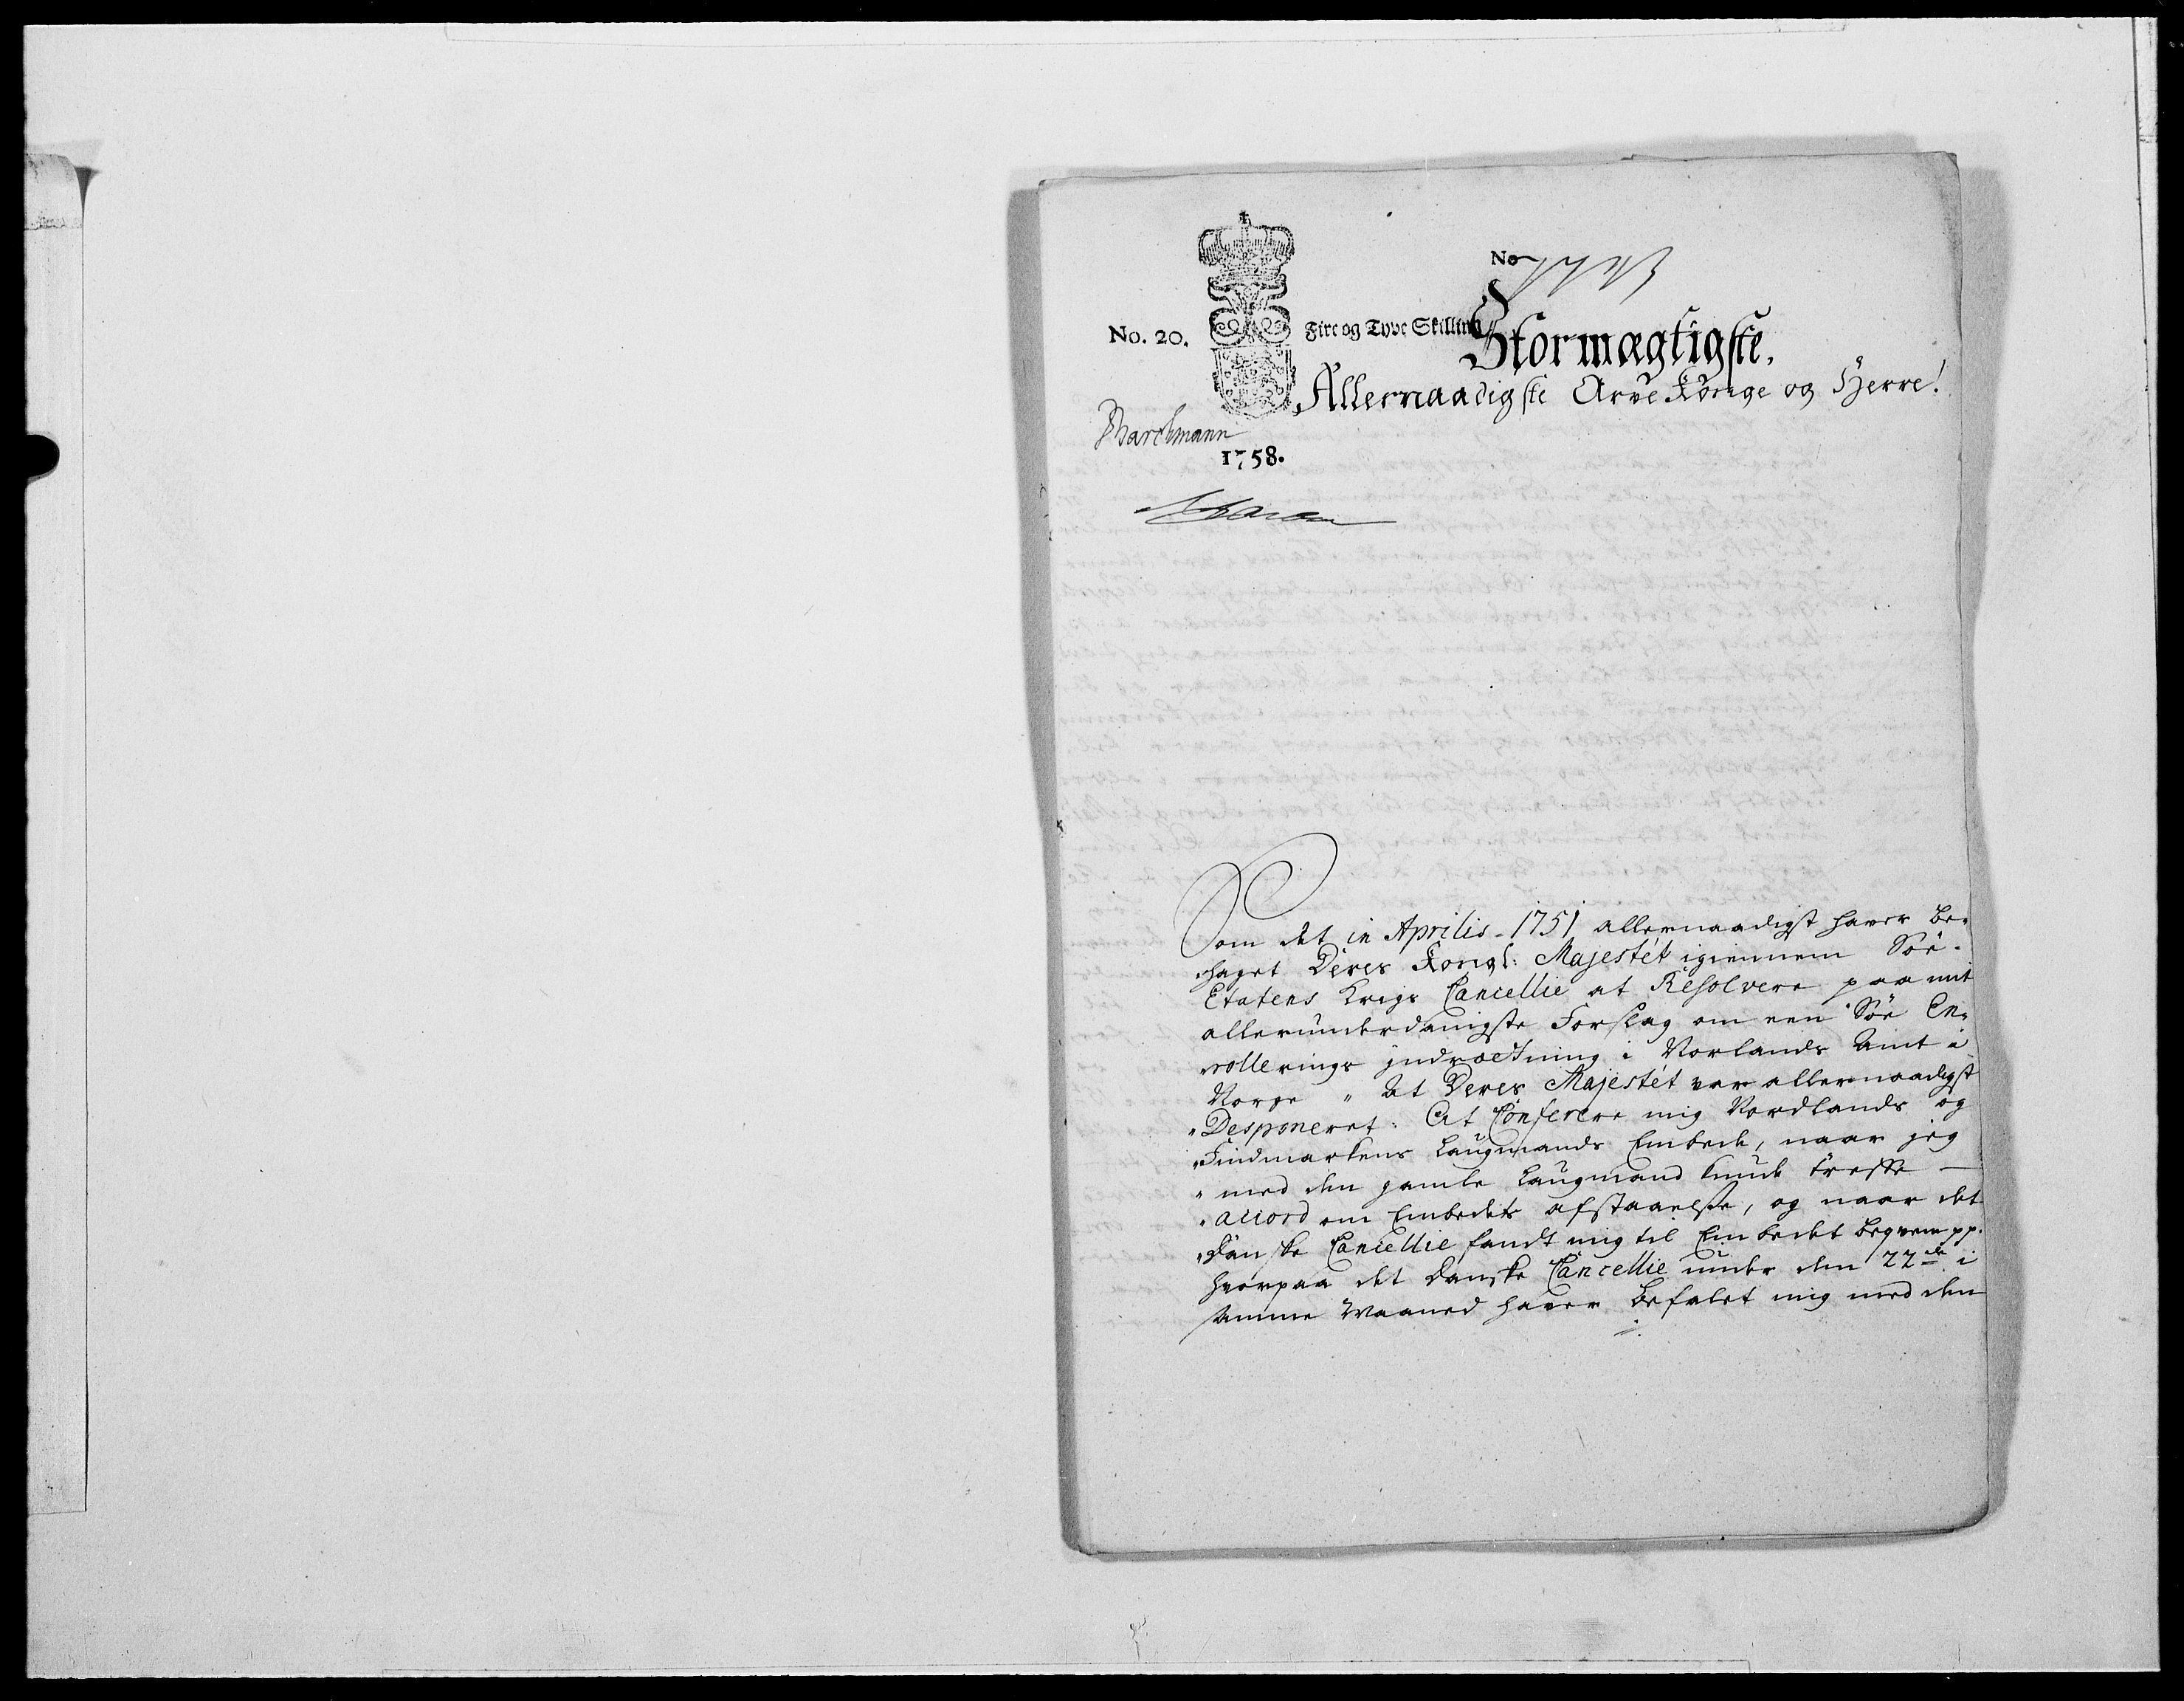 No
No. 20.
Fire og Tyve Skilling
Stormægtigste,
Allernaadigste Arve Konge og Herre!
Barchmann
1758.
Som det in Aprilis 1751 allernaadigst haver be„
„haget Deres Kongl: Majestét igiennem Söe-
Etatens Krigs Cancellie at Resolvere paa mit
allerunderdanigste Forslag om een Söe En„
„rollerings Jndrætning i Norlands Amt i
Norge „ At Deres Majestét var allernaadigst
„Desponeret: At Conferere mig Nordlands og
„Findmarkens Laugmands Embede, naar jeg
„ med den gamle Laugmand kunde træffe —
„accord om Embedets afstaaelse, og naar det
„Danske Cancellie fandt mig til Embedet beqvem pp.
hvorpaa det danske Cancellie under den 22de i
samme Maaned haver befalet mig med den